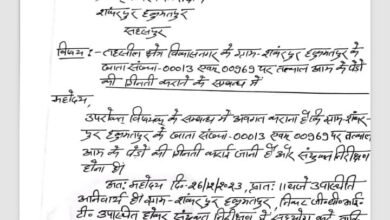 शंकरपुर हकुमतपुर
सहसपुर
विषय :- तहसील क्षेत्र विकासनगर के ग्राम- शंकरपुर हकुमतपुर के
खाता संख्या- 00013 एवम् 00969 पर तत्काल आम के पेडों
की गिनती कराने के सम्बन्ध में
महोदय,
उपरोक्त विषयक के सम्बन्ध में अवगत कराना है कि ग्राम- शंकर-
पुर हकुमतपुर के खाता संख्या- 00013 एवम् 00969 पर तत्काल
आम के पेडों की गिनती कराई जानी है और संयुक्त निरीक्षण
होना है।
अतः महोदय दिन- 26/12/2023, प्रातः 11 बजे उपस्थिति
अनिवार्य है। ग्राम- शंकरपुर हकुमतपुर, निकट
उपस्थित होकर संयुक्त निरीक्षण में सहयोग